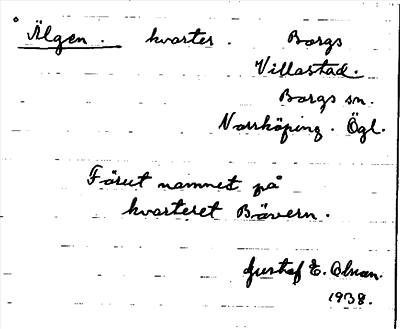 Älgen. kvarter. Borgs
Villastad.
Borgs sn.
Norrköping. Ögl.
Förut namnet på
kvarteret Bävern.
Gustaf E. Olson.
1938.